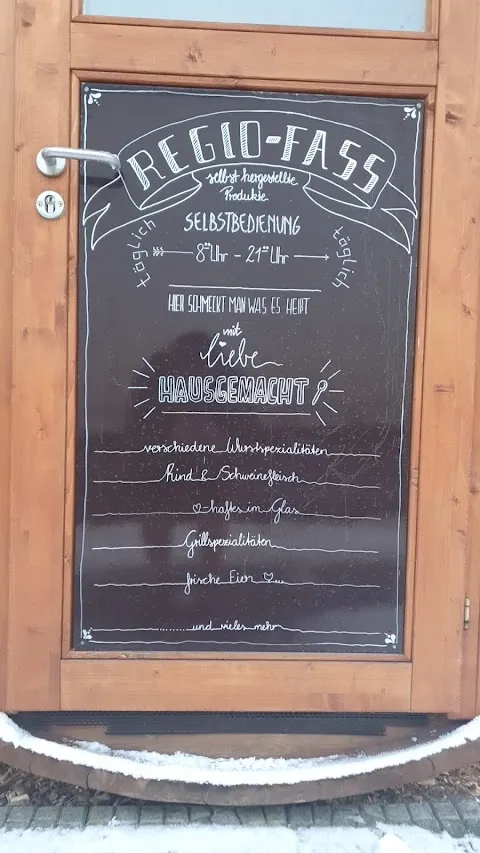 REGIO-FASS
selbst hergestellte
Produkte
SELBSTBEDIENUNG
täglich 8⁰⁰ Uhr - 21⁰⁰ Uhr täglich
HIER SCHMECKT MAN WAS ES HEIßT
mit
liebe
HAUSGEMACHT
verschiedene Wurstspezialitäten
Rind & Schweinefleisch
♡-haftes im Glas
Grillspezialitäten
frische Eier ...
.........und vieles mehr